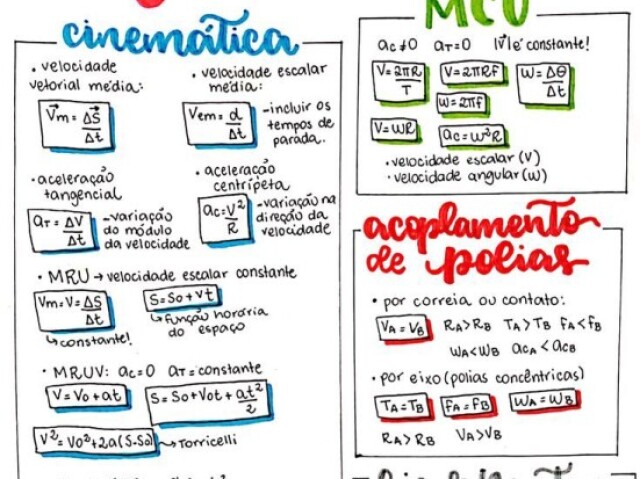 cinemática
• velocidade
vetorial média:
V⃗m = ΔS⃗/Δt
• velocidade escalar
média:
Vem = d/Δt
-incluir os
tempos de
parada.
• aceleração
tangencial
aT = ΔV/Δt
-variação
do módulo
da velocidade
• aceleração
centrípeta
ac = V²/R
-variação na
direção da
velocidade
• MRU → velocidade escalar constante
Vm = V = ΔS/Δt
↳ constante!
S = So + Vt
↳ função horária
do espaço
• MRUV: ac = 0 aT = constante
V = Vo + at
S = So + Vot + at²/2
V² = Vo² + 2a(S-So)
→ Torricelli
MCU
ac ≠ 0 aT = 0 |V⃗| é constante!
V = 2πR/T
V = 2πRf
W = 2πf
W = Δθ/Δt
V = WR
ac = W²R
• velocidade escalar (V)
• velocidade angular (W)
acoplamento
de polias
• por correia ou contato:
VA = VB RA > RB TA > TB fA < fB
WA < WB acA < acB
• por eixo (polias concêntricas)
TA = TB fA = fB WA = WB
RA > RB VA > VB